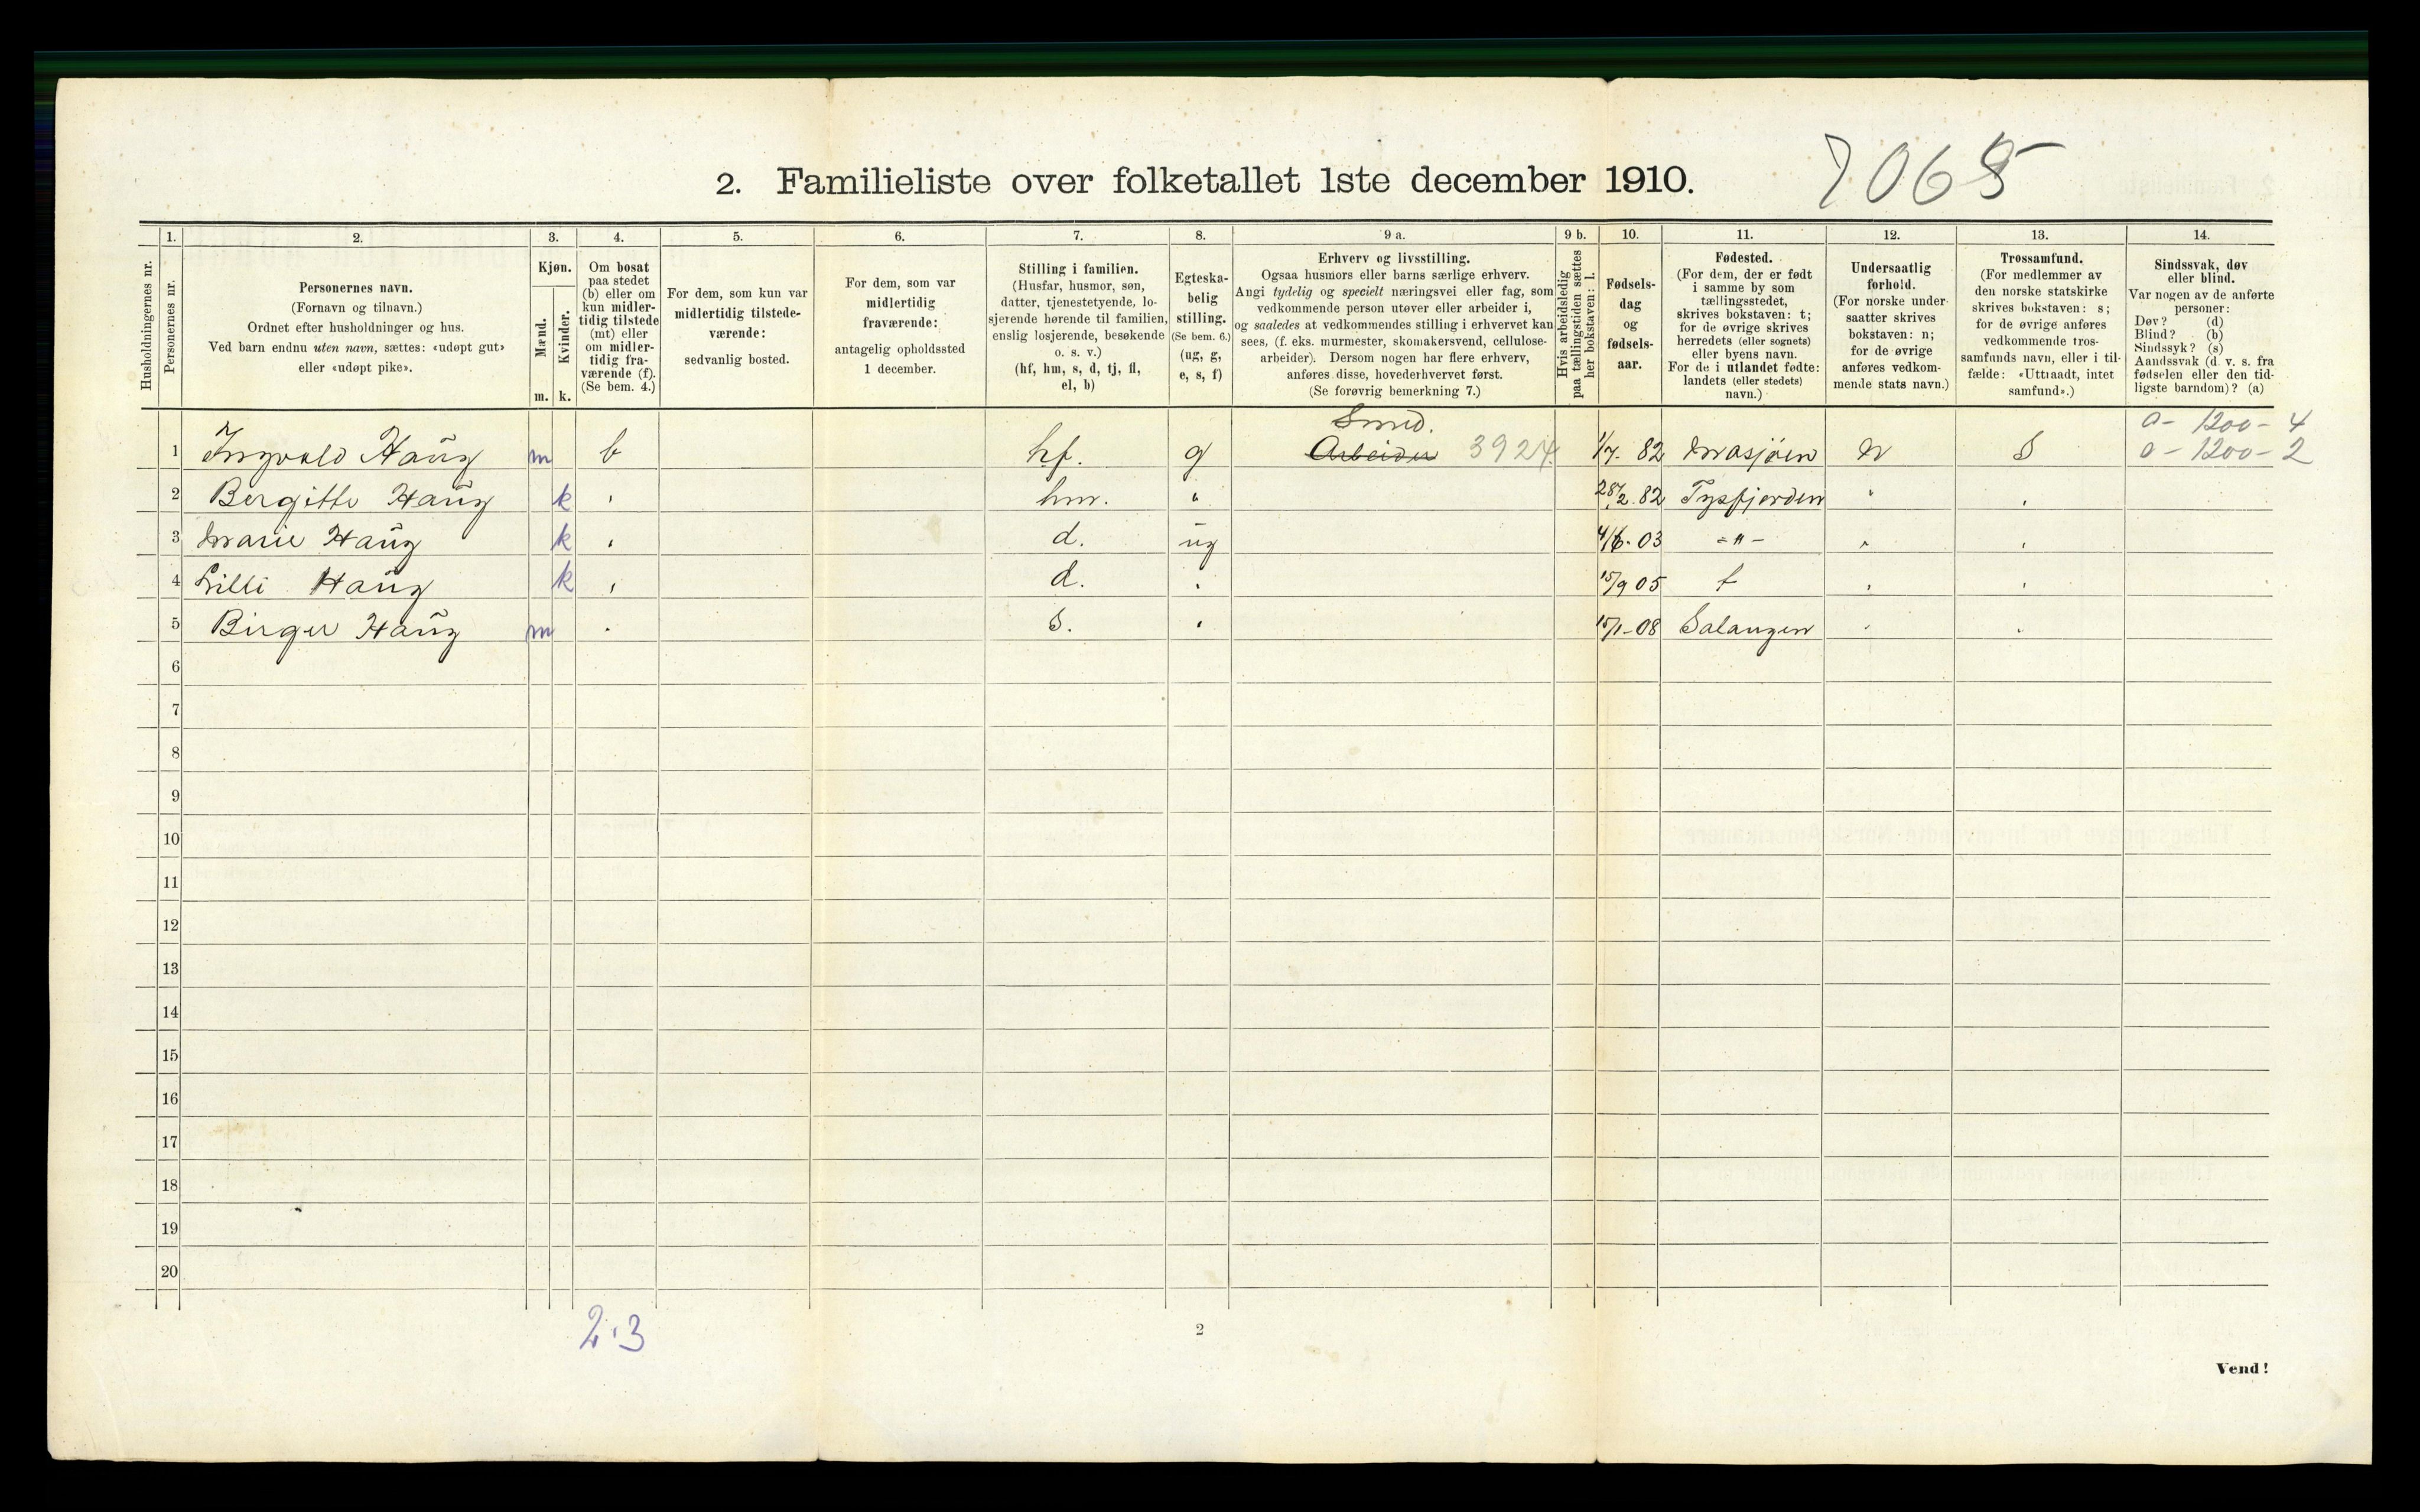 7065
2. Familieliste over folketallet 1ste december 1910.
Husholdningernes nr.
1.
Personernes nr.
2.
Personernes navn.
(Fornavn og tilnavn.)
Ordnet efter husholdninger og hus.
Ved barn endnu uten navn, sættes: «udøpt gut»
eller «udøpt pike».
3.
Kjøn.
Mænd.
Kvinder.
m. k.
4.
Om bosat
paa stedet
(b) eller om
kun midler-
tidig tilstede
(mt) eller
om midler-
tidig fra-
værende (f).
(Se bem. 4.)
5.
For dem, som kun var
midlertidig tilstede-
værende:
sedvanlig bosted.
6.
For dem, som var
midlertidig
fraværende:
antagelig opholdssted
1 december.
7.
Stilling i familien.
(Husfar, husmor, søn,
datter, tjenestetyende, lo-
sjerende hørende til familien,
enslig losjerende, besøkende
o. s. v.)
(hf, hm, s, d, tj, fl,
el, b)
8.
Egteska-
belig
stilling.
(Se bem. 6.)
(ug, g,
e, s, f)
9 a.
Erhverv og livsstilling.
Ogsaa husmors eller barns særlige erhverv.
Angi tydelig og specielt næringsvei eller fag, som
vedkommende person utøver eller arbeider i,
og saaledes at vedkommendes stilling i erhvervet kan
sees, (f. eks. murmester, skomakersvend, cellulose-
arbeider). Dersom nogen har flere erhverv,
anføres disse, hovederhvervet først.
(Se forøvrig bemerkning 7.)
9 b.
Hvis arbeidsledig
paa tællingstiden sættes
her bokstaven: l.
10.
Fødsels-
dag
og
fødsels-
aar.
11.
Fødested.
(For dem, der er født
i samme by som
tællingsstedet,
skrives bokstaven: t;
for de øvrige skrives
herredets (eller sognets)
eller byens navn.
For de i utlandet fødte:
landets (eller stedets)
navn.)
12.
Undersaatlig
forhold.
(For norske under-
saatter skrives
bokstaven: n;
for de øvrige
anføres vedkom-
mende stats navn.)
13.
Trossamfund.
(For medlemmer av
den norske statskirke
skrives bokstaven: s;
for de øvrige anføres
vedkommende tros-
samfunds navn, eller i til-
fælde: «Uttraadt, intet
samfund».)
14.
Sindssvak, døv
eller blind.
Var nogen av de anførte
personer:
Døv? (d)
Blind? (b)
Sindssyk? (s)
Aandssvak (d. v. s. fra
fødselen eller den tid-
ligste barndom)? (a)
Smed. 0 - 1200 - 4
1 Ingvald Haug m b hf. g Arbeider 3924 1/7 - 82 Mosjøen N S 0 - 1200 - 2
2 Bergitte Haug k " hm. " 28/2.82 Tysfjorden " "
3 Marie Haug k " d. ug 4/6 - 03 -"- " "
4 Lilli Haug k " d. " 15/9 05 t " "
5 Birger Haug m " s. " 15/1 - 08 Salangen " "
6
7
8
9
10
11
12
13
14
15
16
17
18
19
20
2·3
2
Vend!